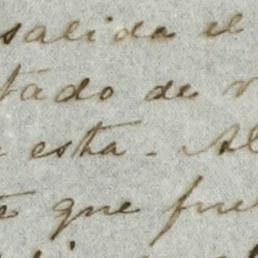 salida el
tado de
esta. Al
que fue